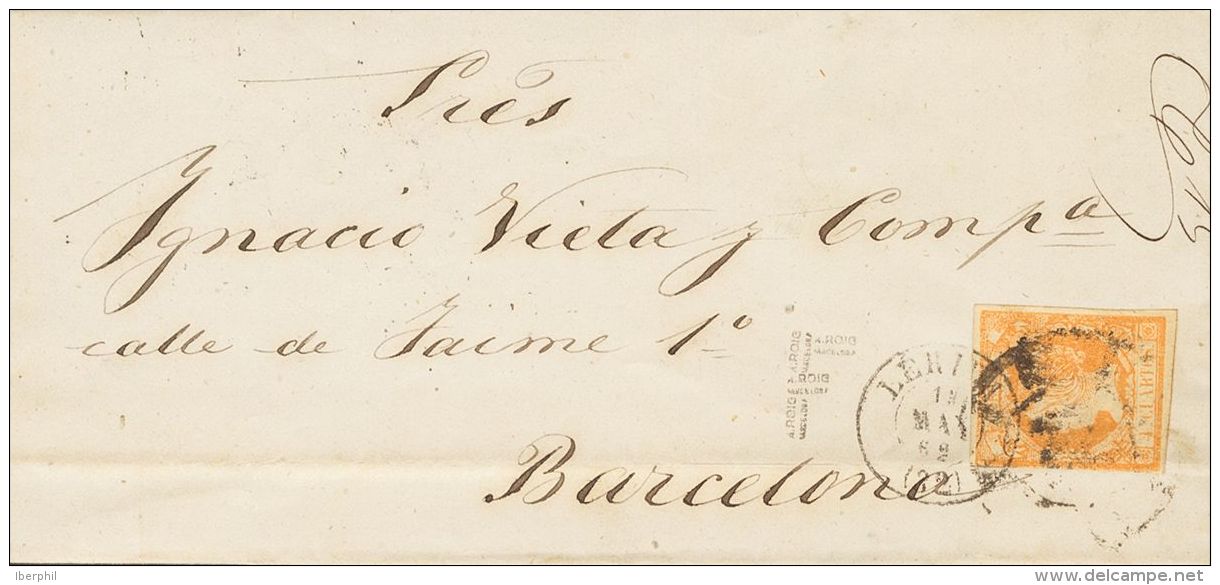 Sres
Ignacio Vieta y Compª
calle de Jaime 1º
Barcelona
A.ROIG
BARCELONA
A.ROIG
BARCELONA
A.ROIG
BARCELONA
A.ROIG
BARCELONA
LERI
(22)
Iberphil
delcampe.net